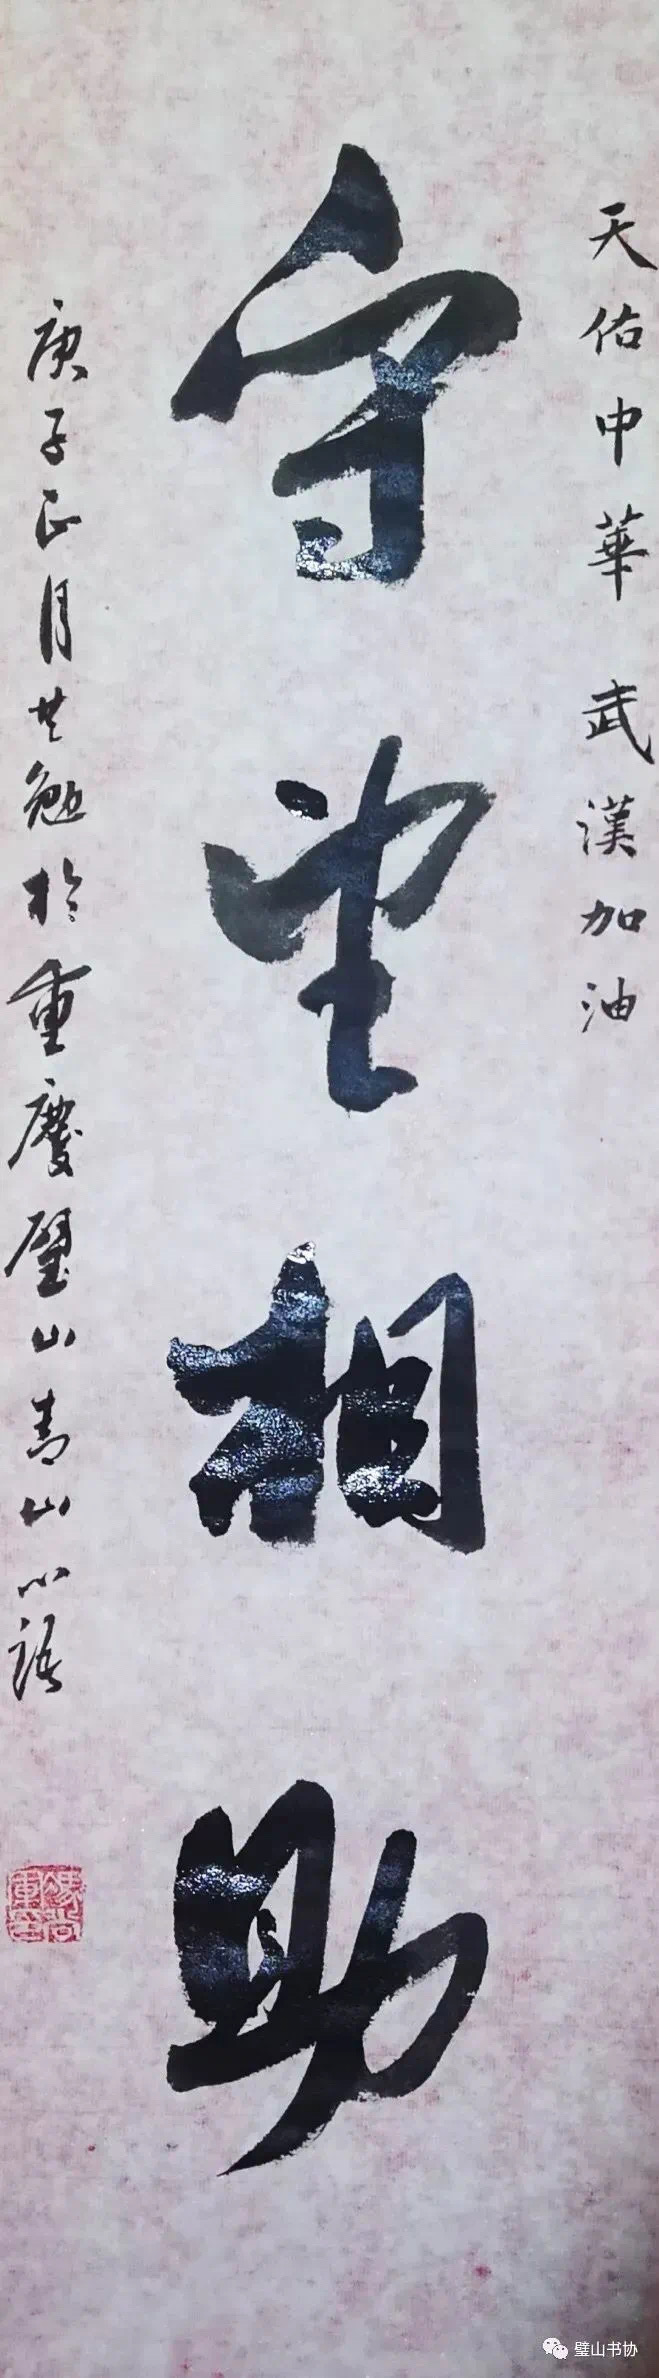 天佑中華 武漢加油
守望相助
庚子正月共勉於重慶璧山青山小語
璧山书协